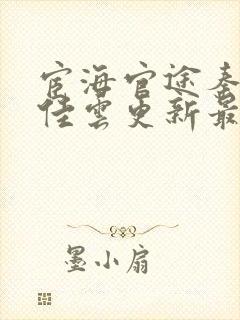 宦海官途秦
佳云更新最
墨小扇